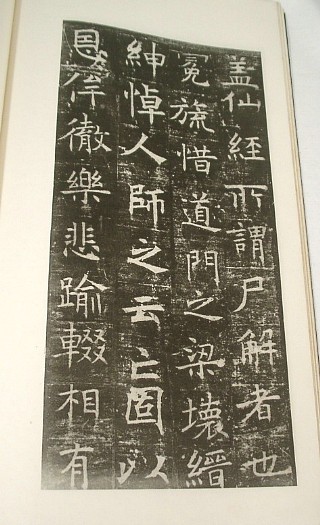 盖仙経所謂尸解者也
冕旒惜道門之梁壞縉
紳悼人師之云亡固以
恩侔徹樂悲踰輟相有